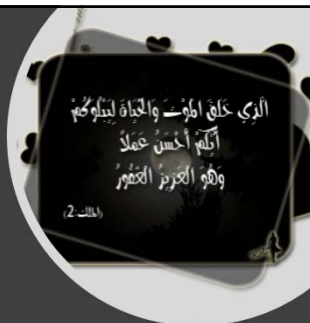 الَّذِي خَلَقَ الْمَوْتَ وَالْحَيَاةَ لِيَبْلُوَكُمْ
أَيُّكُمْ أَحْسَنُ عَمَلًا
وَهُوَ الْعَزِيزُ الْغَفُورُ
(الملك-2)